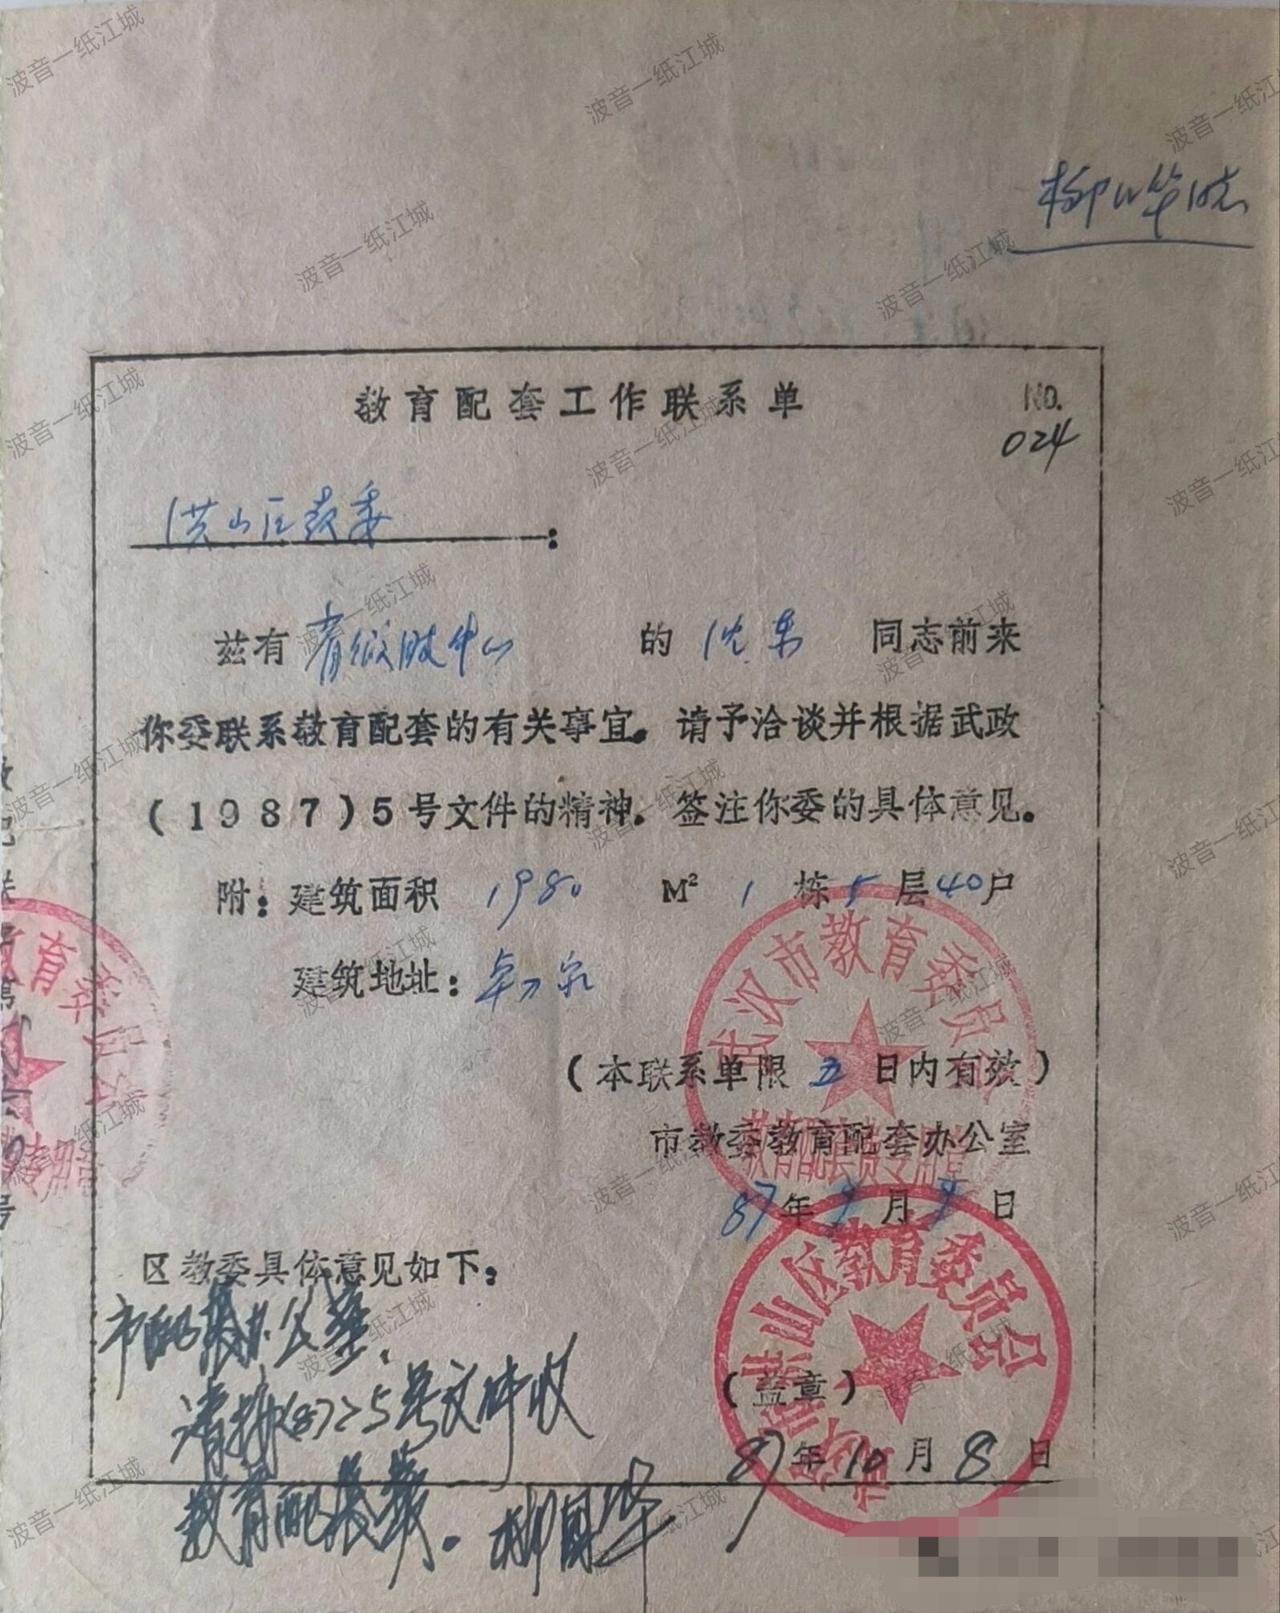 教育配套工作联系单
NO.
024
洪山区教委:
兹有 的 沈 同志前来
你委联系教育配套的有关事宜。请予洽谈并根据武政
(1987)5号文件的精神。签注你委的具体意见。
附:建筑面积 1980 M² 1 栋 5 层 40 户
建筑地址:卓刀泉
(本联系单限 五 日内有效)
市教委教育配套办公室
87年9月 日
武汉市教育委员会
教育配套费专用章
区教委具体意见如下:
市配套办公室:
请按(87)5号文件收
教育配套费。柳
(盖章)
87年10月8日
武汉市洪山区教育委员会
教育委员会
波音一纸江城